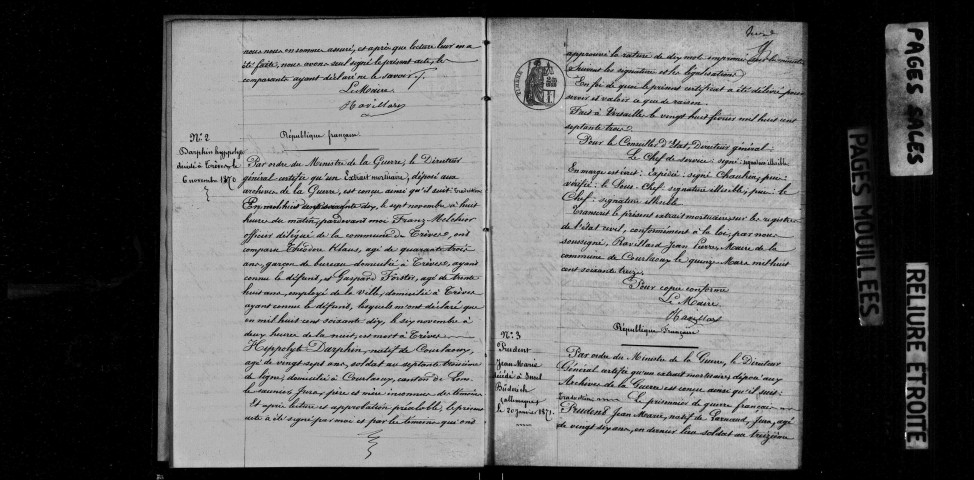 nous nous en sommes assuré, et après que lecture leur en a
été faite, nous avons seul signé le présent acte, le
comparante ayant déclaré ne le savoir.
Le Maire
Ravillard
N° 2
Darphin hyppolyte
décédé à Trèves, le
6 novembre 1870
République française
Par ordre du Ministre de la Guerre, le Directeur
général certifie qu'un Extrait mortuaire, déposé aux
archives de la Guerre, est conçu ainsi qu'il suit: traduction
En mil huit cent soixante dix, le sept novembre à huit
heures du matin, pardevant moi Franz Melchior
officier délégué de la commune de Trèves, ont
comparu Théodore Klaus, agé de quarante trois
ans, garçon de bureau domicilié à Trèves, ayant
connu le défunt, et Gaspard Förster, agé de trente
huit ans, employé de la ville, domicilié à Trèves
ayant connu le défunt, lesquels m'ont déclaré que
en mil huit cent soixante dix, le six novembre à
deux heures de la nuit, est mort à Trèves
Hippolyte Darphin, natif de Courlaoux,
agé de vingt sept ans, soldat au septante troisième
de ligne, domicilié à Courlaoux, canton de Lons
le saunier, Jura, père et mère inconnus du témoin
Et après lecture et approbation préalable, le présent
acte a été signé par moi et par les témoins qui ont
approuvé la rature de dix mots imprimés
Suivent les signatures et les légalisations
En foi de quoi le présent certificat a été délivré pour
servir et valoir ce que de raison.
Fait à Versailles le vingt huit février mil huit cent
septante trois.
Pour le Conseiller d'Etat, Directeur général:
Le Chef de service: signé: signature illisible
En marge est écrit: Expédié: signé Chantron, pour:
vérifié: le Sous-Chef signature illisible, pour: le
Chef: signature illisible
Transcrit le présent extrait mortuaire sur les registres
de l'état civil, conformément à la loi, par nous
soussigné, Ravillard Jean Pierre, Maire de la
commune de Courlaoux le quinze Mars mil huit
cent soixante treize.
Pour copie conforme
Le Maire
Ravillard
N° 3
Prudent
Jean Marie
décédé à
(allemagne)
le 20 janvier 1871.
République Française
Par ordre du Ministre de la Guerre, le Directeur
Général certifie qu'un extrait mortuaire, déposé aux
Archives de la Guerre est conçu ainsi qu'il suit:
Traduction Le prisonnier de guerre français
Prudent Jean Marie, natif de Jura, agé
de vingt dix ans, en dernier lieu soldat au treizième
PAGES SALES
PAGES MOUILLEES
RELIURE ETROITE